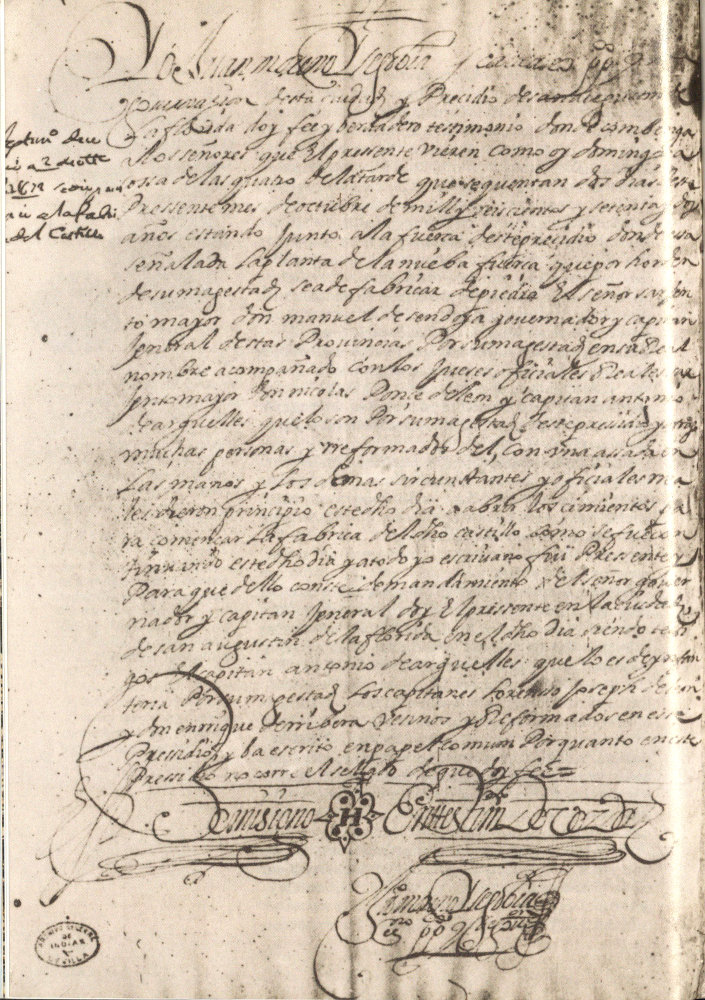 Yo Juan moreno y segovia
governasion desta ciudad y Presidio de san augustin de
la florida doy fee y berdadero testimonio donde combenga
a los señores que El presente vieren como oy domingo a
ora de las quatro de la tarde que se quentan dos dias del
Pressente mes de octubre de mill y seiscientos y setenta y dos
años estando Junto a la fuerca deste presidio donde esta
señalada la planta de la nueba fuerca que por horden
de su magestad se a de fabricar de piedra El señor sargen
to mayor don manuel de sendoya governador y capitan
Jeneral destas Provincias Por su magestad en su Real
nombre acompañado con los Jueses oficiales Reales sar
jento mayor Don nicolas Ponse de leon y capitan antonio
de arguelles que lo son Por su magestad deste presidio y
muchas personas y reformados del, con una asada en
Las manos y Los demas sircunstantes y oficiales
dieron principio este dho dia a abrir los cimientos pa
ra comencar La fabrica del dho castillo como se fue con
tinuando este dho dia y a todo yo escrivano fui Pressente y
Para que dello conste de mandamiento del señor gover
nador y capitan Jeneral doy El presente en la ciudad
de san augustin de la florida en el dho dia siendo testi
gos el capitan antonio de arguelles que lo es
Por su magestad Los capitanes Lorenso Joseph de
y Don enrique de ribera vesinos y Reformados en este
Pressidio y ba escrito en papel comun Por quanto en este
Pressidio no corre el sellado de que doy fee =
en a 2 de
1672 se
a la
del Castillo
H
Juan moreno y segovia
ARCHIVO GENERAL
DE
INDIAS
SEVILLA